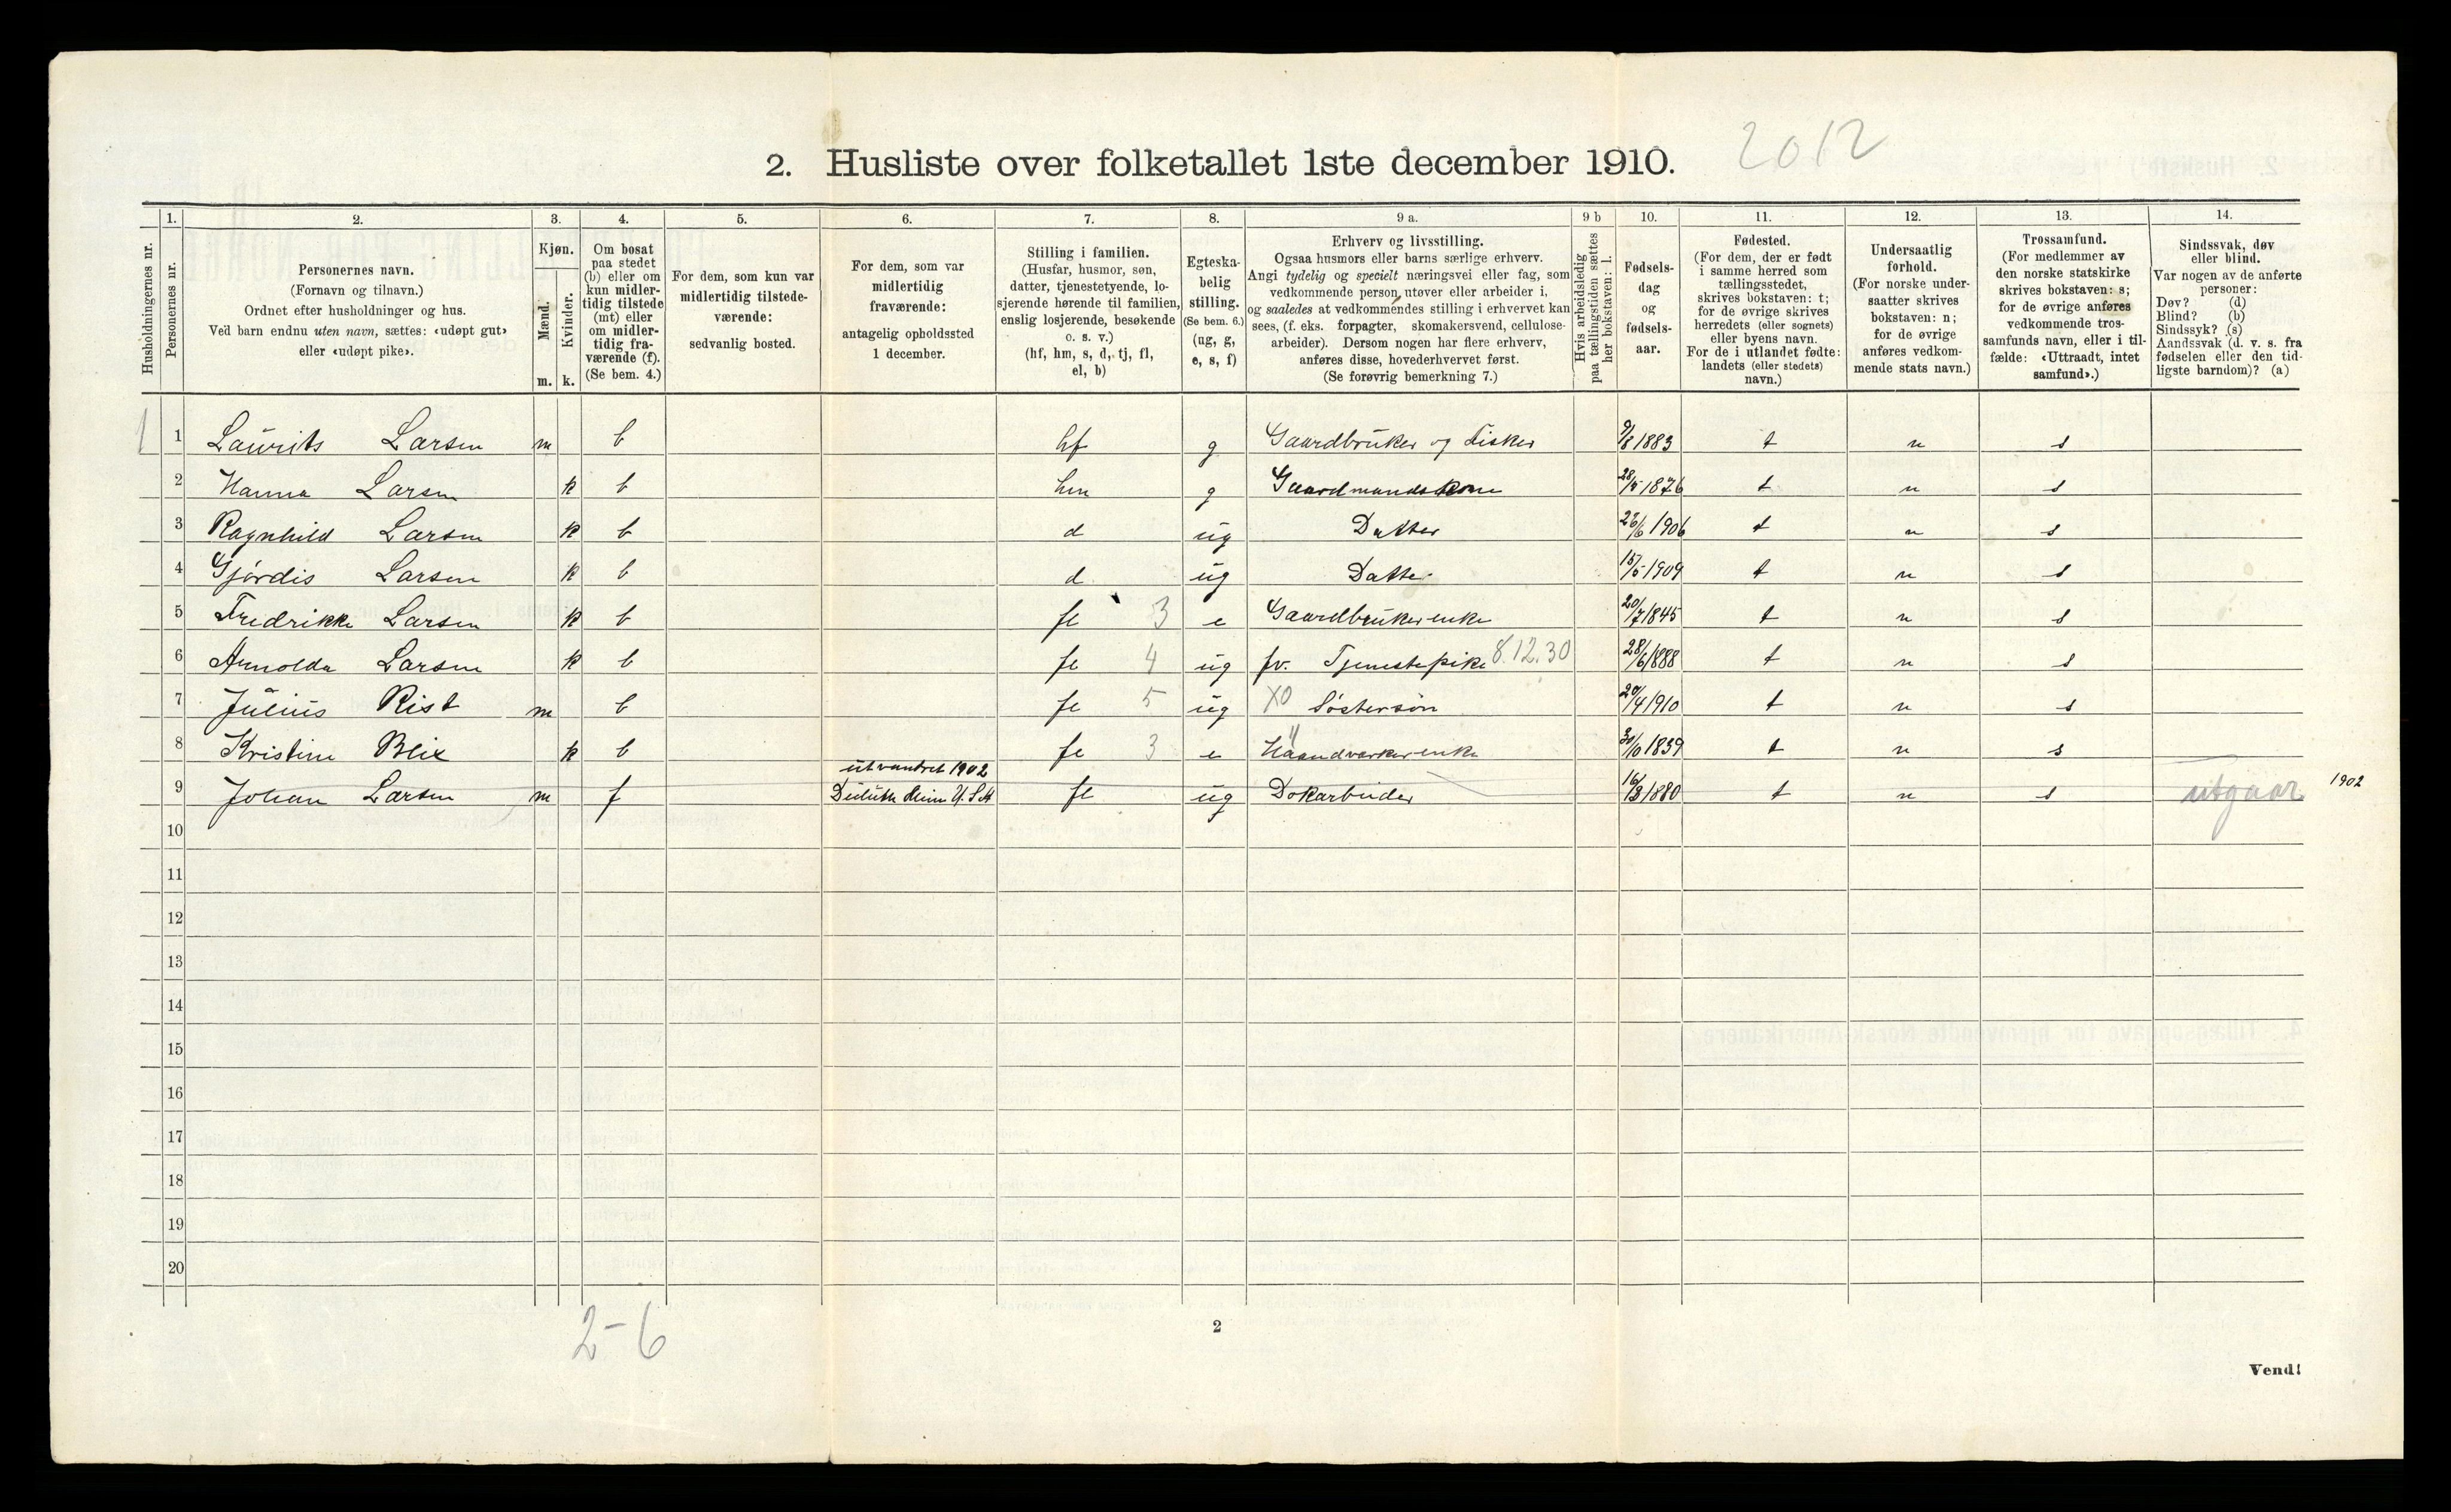 2. Husliste over folketallet 1ste december 1910. 2012
Husholdningernes nr.
1.
Personernes nr.
2.
Personernes navn.
(Fornavn og tilnavn.)
Ordnet efter husholdninger og hus.
Ved barn endnu uten navn, sættes: «udøpt gut»
eller «udøpt pike».
3.
Kjøn.
Mænd.
Kvinder.
m. k.
4.
Om bosat
paa stedet
(b) eller om
kun midler-
tidig tilstede
(mt) eller
om midler-
tidig fra-
værende (f).
(Se bem. 4.)
5.
For dem, som kun var
midlertidig tilstede-
værende:
sedvanlig bosted.
6.
For dem, som var
midlertidig
fraværende:
antagelig opholdssted
1 december.
7.
Stilling i familien.
(Husfar, husmor, søn,
datter, tjenestetyende, lo-
sjerende hørende til familien,
enslig losjerende, besøkende
o. s. v.)
(hf, hm, s, d, tj, fl,
el, b)
8.
Egteska-
belig
stilling.
(Se bem. 6.)
(ug, g,
e, s, f)
9 a.
Erhverv og livsstilling.
Ogsaa husmors eller barns særlige erhverv.
Angi tydelig og specielt næringsvei eller fag, som
vedkommende person utøver eller arbeider i,
og saaledes at vedkommendes stilling i erhvervet kan
sees, (f. eks. forpagter, skomakersvend, cellulose-
arbeider). Dersom nogen har flere erhverv,
anføres disse, hovederhvervet først.
(Se forøvrig bemerkning 7.)
9 b
Hvis arbeidsledig
paa tællingstiden sættes
her bokstaven: l.
10.
Fødsels-
dag
og
fødsels-
aar.
11.
Fødested.
(For dem, der er født
i samme herred som
tællingsstedet,
skrives bokstaven: t;
for de øvrige skrives
herredets (eller sognets)
eller byens navn.
For de i utlandet fødte:
landets (eller stedets)
navn.)
12.
Undersaatlig
forhold.
(For norske under-
saatter skrives
bokstaven: n;
for de øvrige
anføres vedkom-
mende stats navn.)
13.
Trossamfund.
(For medlemmer av
den norske statskirke
skrives bokstaven: s;
for de øvrige anføres
vedkommende tros-
samfunds navn, eller i til-
fælde: «Uttraadt, intet
samfund».)
14.
Sindssvak, døv
eller blind.
Var nogen av de anførte
personer:
Døv? (d)
Blind? (b)
Sindssyk? (s)
Aandssvak (d. v. s. fra
fødselen eller den tid-
ligste barndom)? (a)
1 1 Laurits Larsen m b hf g Gaardbruker og Fisker 9/8 1883 t n s
2 Hanna Larsen k b hm g Gaardmandskone 28/5 1876 t n s
3 Ragnhild Larsen k b d ug Datter 1906 t n s
4 Gjørdis Larsen k b d ug Datter 15/5 1909 t n s
5 Fredrikke Larsen k b fl 3 e Gaardbrukerenke 20/7 1845 t n s
6 Arnolda Larsen k b fl 4 ug fv. Tjenestepike 8.12.30 28/6 1888 t n s
7 Julius Rist m b fl 5 ug XO Søstersøn 20/4 1910 t n s
8 Kristine Blix k b fl 3 e Haandverkerenke 1839 t n s
utvandret 1902
9 Johan Larsen m f Duluth Minn U.S.A fl ug Dokarbeider 16/3 1880 t n s utgaar 1902
10
11
12
13
14
15
16
17
18
19
20
2-6
2
Vend!